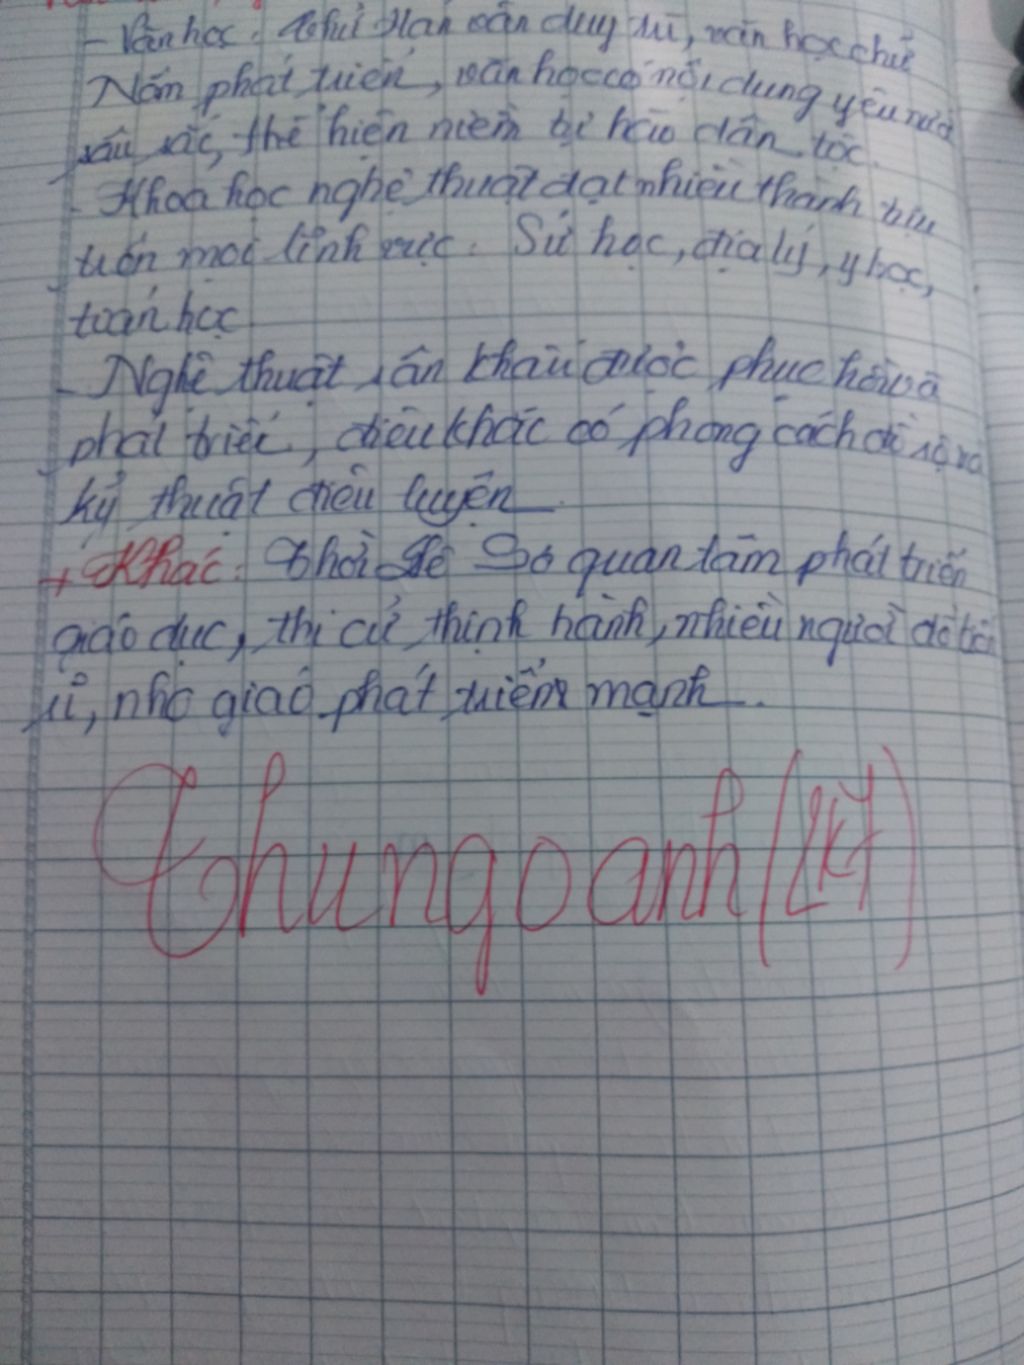 - Văn học: Chữ Hán vẫn duy trì, văn học chữ
Nôm phát triển, văn học có nội dung yêu nước
sâu sắc, thể hiện niềm tự hào dân tộc.
- Khoa học nghệ thuật đạt nhiều thành tựu
trên mọi lĩnh vực: Sử học, địa lý, y học,
toán học
- Nghệ thuật sân khấu được phục hồi và
phát triển, điêu khắc có phong cách đồ sộ và
kỹ thuật điêu luyện
+ Khác: Thời Lê Sơ quan tâm phát triển
giáo dục, thi cử thịnh hành, nhiều người đỗ tiến
sĩ, nho giáo phát triển mạnh.
Thu ngoanh (LKT)